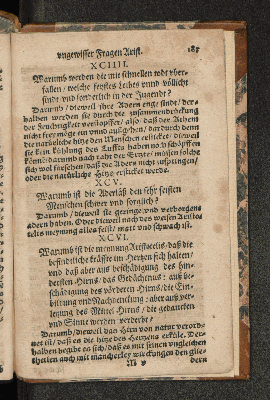 ungewisser Fragen Arist. 183
XCIIII.
Warumb werden die mit schnellen todt vber-
fallen / welche feystes Leibes vnnd völlicht
sindt vnd sonderlich in der Jugendt?
Darumb / dieweil ihre Adern eng sindt / der-
halben werden sie durch die zusammendrückung
der Feuchtigkeit verstopffet / also / daß der Athem
nicht frey möge ein vnnd außgehen / dardurch denn
die natürliche hitze den Menschen ersticket / dieweil
sie kein Kühlung des Luffts haben noch schöpffen
könn: darumb nach raht der Ertzte / müssen solche
sich wol fürsehen / daß die Adern nicht
oder die natürliche hitze ersticket werde.
XCV.
Warumb ist die Aderläß den sehr feisten
Menschen schwer vnd sorglich?
Darumb / dieweil sie geringe vnd verborgens
adern haben. Oder dieweil nach des weisen Aristo-
telis meynung alles feist / matt vnd schwach ist.
XCVI.
Warumb ist die meynung Aristotelis / daß die
befindtliche kräffte im Hertzen sich halten /
vnd daß aber aus beschädigung des hin-
dersten Hirns / das Gedächtnus: aus be-
schädigung des vörderen Hirns / die Ein-
bildung vnd Nachdenckung: aber auß ver-
letzung des Mittel Hirns / die gedancken
vnd Sinne werden verderbt?
Darumb / dieweil das Hirn von natur verord-
net ist / daß es die hitze des Hertzens erküle. Der-
halben begibt es sich / daß es mit seinen vngleichen
theilen auch mit mancherley wirckungen den glie-
M v dern